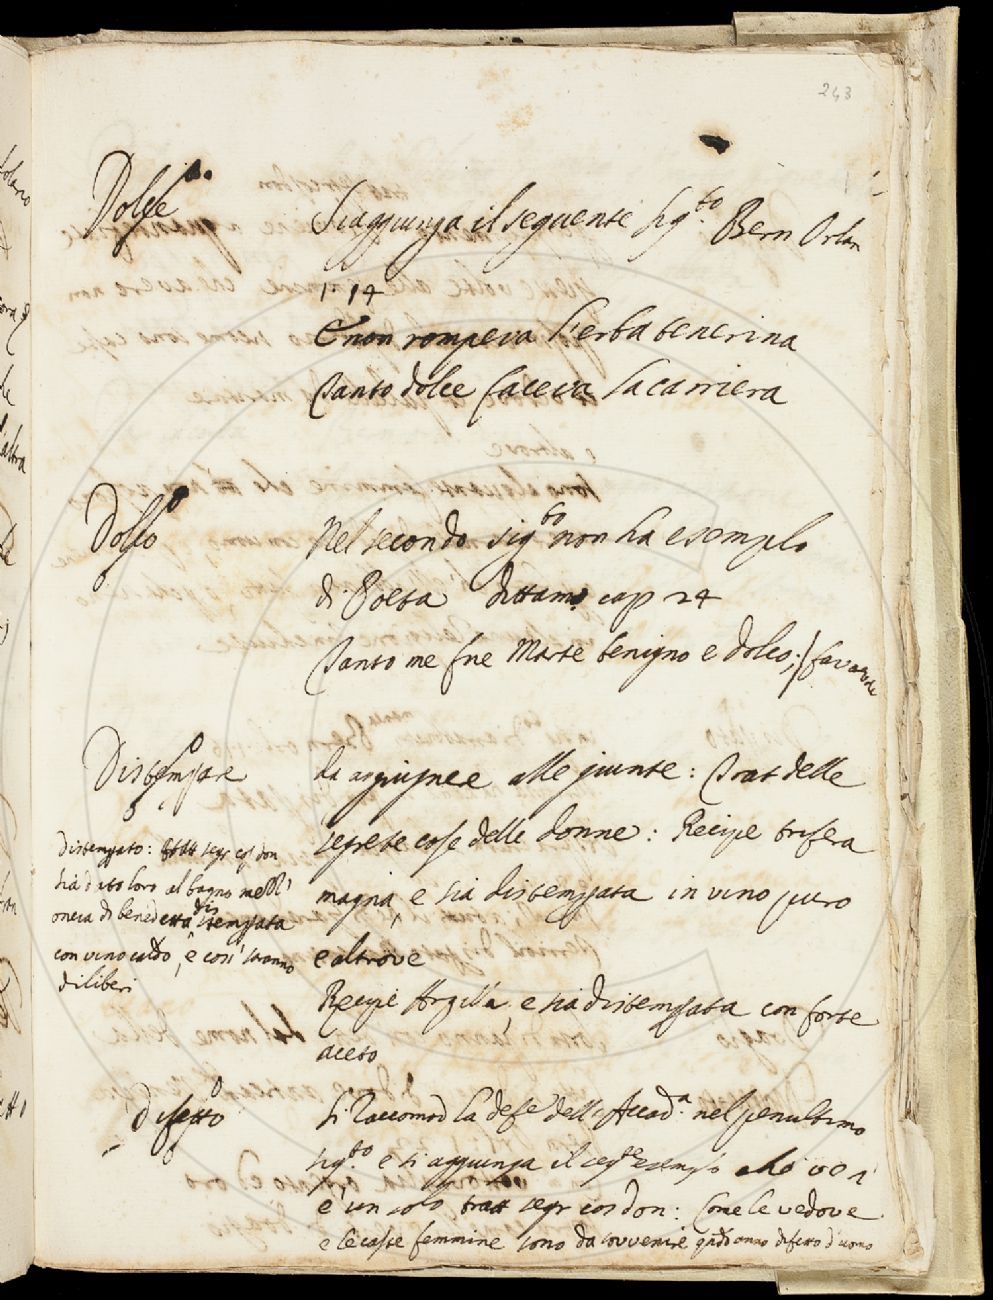 243
Dolce
Si aggiunga il seguente sig.to Bern Orlan
1 14
E non rompeva l'erba tenerina
Tanto dolce faceva la carriera
Dolco
Nel secondo sig.to non ha esemplo
di Poeta dittam cap 24
Tanto me fue Marte benigno e dolco;
Distemperare
da aggiugnere alle giunte: Trat delle
segrete cose delle donne: Recipe trifera
magna, e sia distemperata in vino puro
e altrove
Recipe Argilla, e sia distemperata con forte
aceto
distemperato: tratt segr cos don
sia dato loro al bagno mezz'
oncia di benedetta distemperata
con vino caldo, e così saranno
diliberi
Difetto
Si Raccomod la defe dell'Accad.a nel penultimo
sig.to e si aggiunga il seg.e esemplo
è un solo tratt segr cos don: Come le vedove
e le caste femmine sono da sovvenire difetto d'uomo